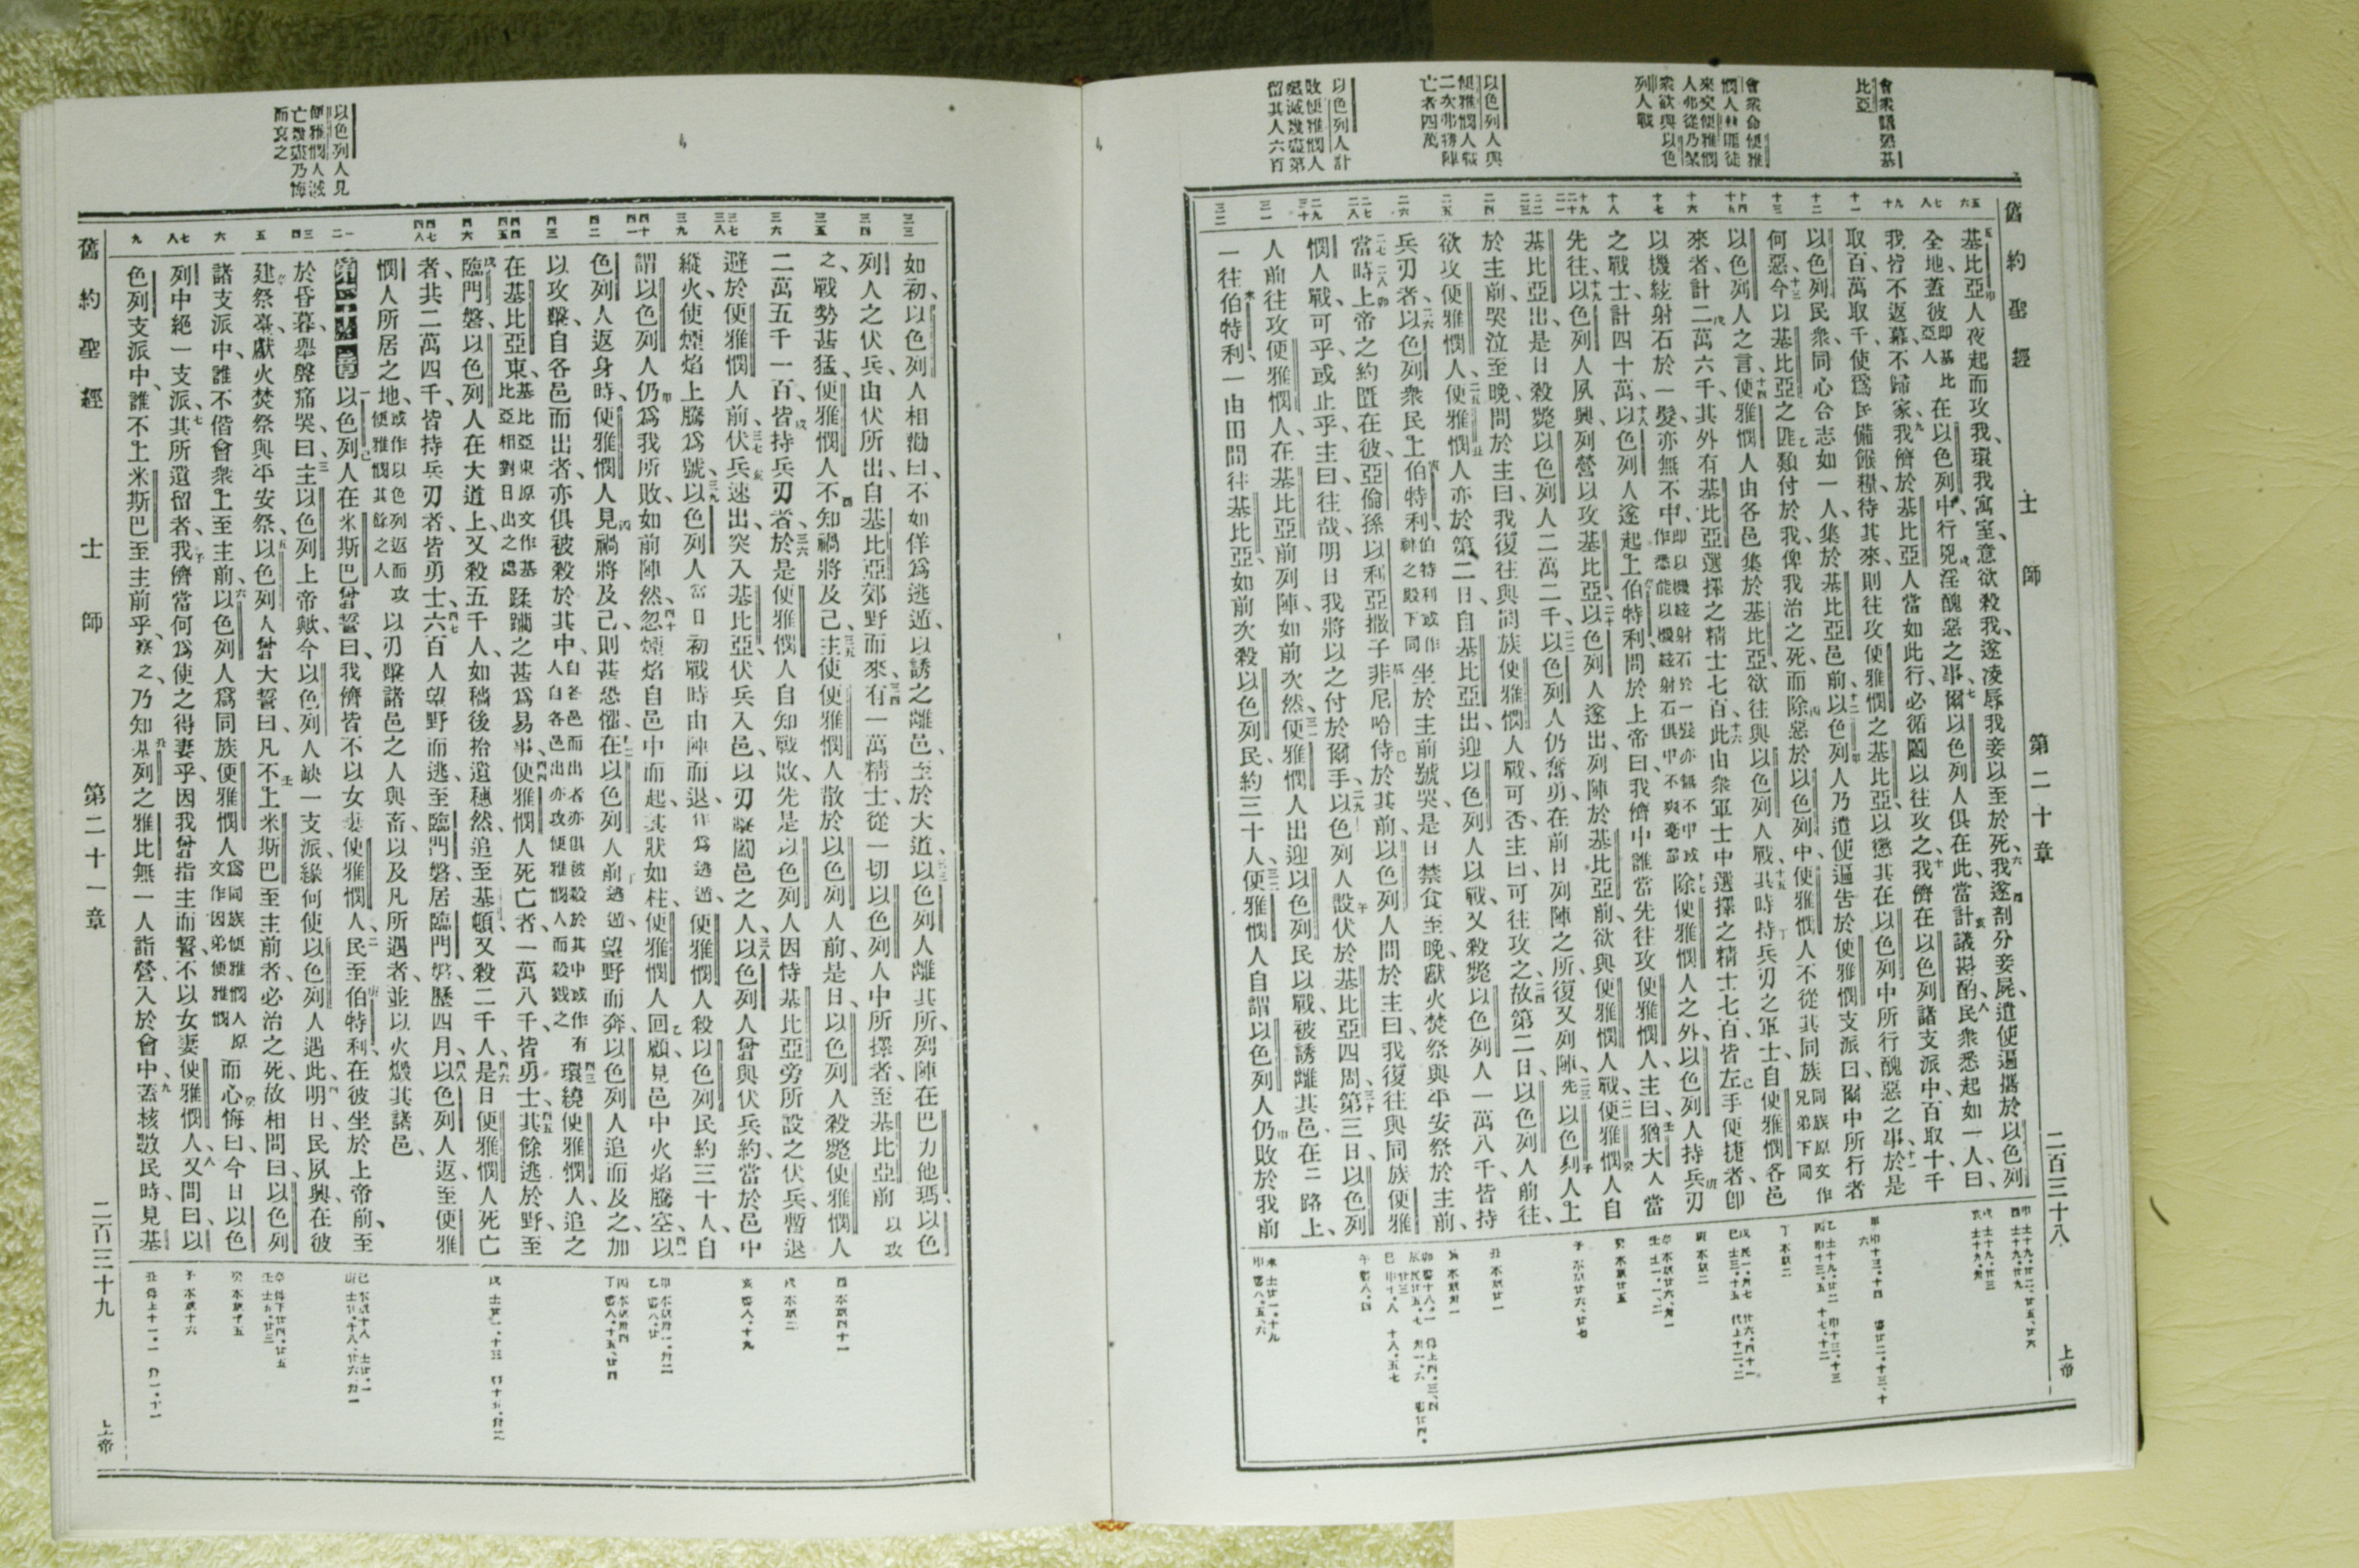 舊約聖經 士師 第二十章 二百三十八 上帝
會衆議懲基
比亞
會衆命便雅
人弗從乃聚
衆欲與以色
列人戰
以色列人與
便雅憫人戰
二次弗勝陣
亡者四萬
以色列人計
敗便雅憫人
殲滅幾盡第
留其人六百
基比亞人夜起而攻我、環我寓室、意欲殺我、遂凌辱我妾以至於死、我遂剖分妾屍、遣使遍攜於以色列
全地、蓋彼即基比亞人在以色列中行兇淫醜惡之事、爾以色列人俱在此、當計議斟酌、民衆悉起如一人曰、
我皆不返幕、不歸家、我儕於基比亞人當如此行、必循鬮以往攻之、我儕在以色列諸支派中、百取十、千
取百、萬取千、使爲民備餱糧、待其來、則往攻便雅憫之基比亞、以懲其在以色列中所行醜惡之事、於是
以色列民衆、同心合志如一人、集於基比亞邑前、以色列人乃遣使遍告於便雅憫支派曰、爾中所行者
何惡、今以基比亞之匪類付於我、俾我治之死、而除惡於以色列中、便雅憫人不從其同族同族原文作兄弟下同
以色列人之言、便雅憫人由各邑集於基比亞、欲往與以色列人戰、其時持兵刃之軍士、自便雅憫各邑
來者、計二萬六千、其外有基比亞選擇之精士七百、此由衆軍士中選擇之精士七百、皆左手便捷者、卽
以機絃射石於一髮、亦無不中、即以機絃射石於一髮亦無不中或作悉能以機絃射石俱中不爽毫釐除便雅憫人之外、以色列人持兵刃
之戰士、計四十萬、以色列人遂起上伯特利、問於上帝曰、我儕中誰當先往攻便雅憫人、主曰、猶大人當
先往、以色列人夙興、列營以攻基比亞、以色列人遂出列陣於基比亞前、欲與便雅憫人戰、便雅憫人自
基比亞出、是日殺斃以色列人二萬二千、以色列人仍奮勇、在前日列陣之所復又列陣、先以色列人上
於主前、哭泣至晚、問於主曰、我復往與同族便雅憫人戰可否、主曰、可往攻之、故第二日、以色列人前往、
欲攻便雅憫人、便雅憫人亦於第二日、自基比亞出、迎以色列人以戰、又殺斃以色列人一萬八千、皆持
兵刃者、以色列衆民上伯特利、伯特利或作神之殿下同坐於主前號哭、是日禁食至晚、獻火焚祭與平安祭於主前、
當時上帝之約匱在彼、亞倫孫以利亞撒子非尼哈侍於其前、以色列人問於主曰、我復往與同族便雅
憫人戰可乎、或止乎、主曰、往哉、明日我將以之付於爾手、以色列人設伏於基比亞四周、第三日、以色列
人前往攻便雅憫人、在基比亞前列陣、如前次然、便雅憫人出迎以色列民以戰、被誘離其邑、在二路上、
一往伯特利、一由田間往基比亞、如前次殺以色列民、約三十人、便雅憫人自謂以色列人仍敗於我前
以色列人見
便雅憫人滅
亡幾盡乃悔
而哀之
如初、以色列人相勸曰、不如佯爲逃遁、以誘之離邑、至於大道、以色列人離其所、列陣在巴力他瑪、以色
列人之伏兵、由伏所出、自基比亞郊野而來、有一萬精士、從一切以色列人中所擇者、至基比亞前以攻
之、戰勢甚猛、便雅憫人不知禍將及己、主使便雅憫人散於以色列人前、是日、以色列人殺斃便雅憫人
二萬五千一百、皆持兵刃者、於是便雅憫人自知戰敗、先是以色列人因恃基比亞旁所設之伏兵、暫退
避於便雅憫人前、伏兵速出、突入基比亞、伏兵入邑、以刃擊闔邑之人、以色列人曾與伏兵約、當於邑中
縱火、使煙焰上騰爲號、以色列人當日初戰時由陣而退、佯爲逃遁、便雅憫人殺以色列民約三十人、自
謂以色列人仍爲我所敗、如前陣然、忽煙焰自邑中而起、其狀如柱、便雅憫人回顧、見邑中火焰騰空、以
色列人返身時、便雅憫人見禍將及己、則甚恐懼、在以色列人前逃遁、望野而奔、以色列人追而及之、加
以攻擊、自各邑而出者、亦俱被殺於其中、自各邑而出者亦俱被殺於其中或作有人自各邑出亦攻便雅憫人而殺戮之環繞便雅憫人、追之
在基比亞東、基比亞東原文作基比亞相對日出之處蹂躪之甚爲易事、便雅憫人死亡者、一萬八千、皆勇士、其餘逃於野、至
臨門磐、以色列人在大道上、又殺五千人、如穡後拾遺穗然、追至基頓、又殺二千人、是日便雅憫人死亡
者、共二萬四千、皆持兵刃者、皆勇士、六百人望野而逃、至臨門磐、居臨門磐、歷四月、以色列人返、至便雅
憫人所居之地、或作以色列返而攻便雅憫其餘之人以刃擊諸邑之人與畜、以及凡所遇者、並以火燬其諸邑、
第二十一章 以色列人在米斯巴曾誓曰、我儕皆不以女妻便雅憫人、民至伯特利、在彼坐於上帝前、至
於昏暮、舉聲痛哭、曰、主以色列上帝歟、今以色列人缺一支派、緣何使以色列人遇此、明日民夙興、在彼
建祭臺、獻火焚祭與平安祭、以色列人曾大誓曰、凡不上米斯巴至主前者、必治之死、故相問曰、以色列
諸支派中、誰不偕會衆上至主前、以色列人爲同族便雅憫人爲同族便雅憫人原文作因弟便雅憫而心悔曰、今日以色
列中絕一支派、其所遺留者、我儕當何爲使之得妻乎、因我曾指主而誓、不以女妻便雅憫人、又問曰、以
色列支派中、誰不上米斯巴至主前乎、察之、乃知基列之雅比無一人詣營、入於會中、蓋核數民時、見基
舊約聖經 士師 第二十一章 二百三十九 上帝